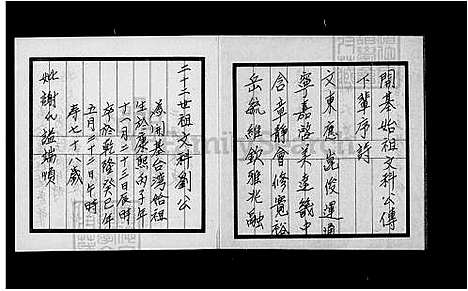 開基始祖文科公傳
下輩序詩
文東應嵩俊運通
寧嘉啓美遠籌中
含章靜會修寬裕
岳毓維欽雅兆融
二十二世祖文科劉公
為開基台灣始祖
生於康熙丙子年
十一月二十三日辰時
卒於乾隆癸巳年
五月二十二日午時
寿七十八歲
妣謝氏諡端順